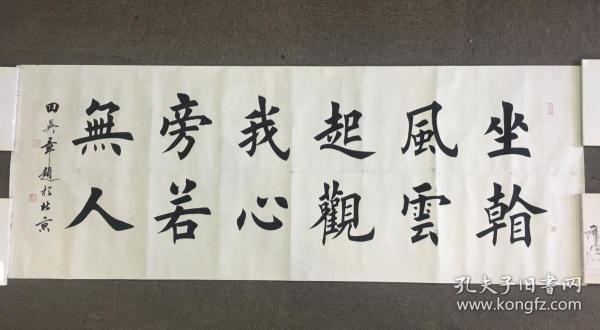 坐斡
風雲
起觀
我心
旁若
無人
田英章題於北京
孔夫子旧书网
www.kongfz.com